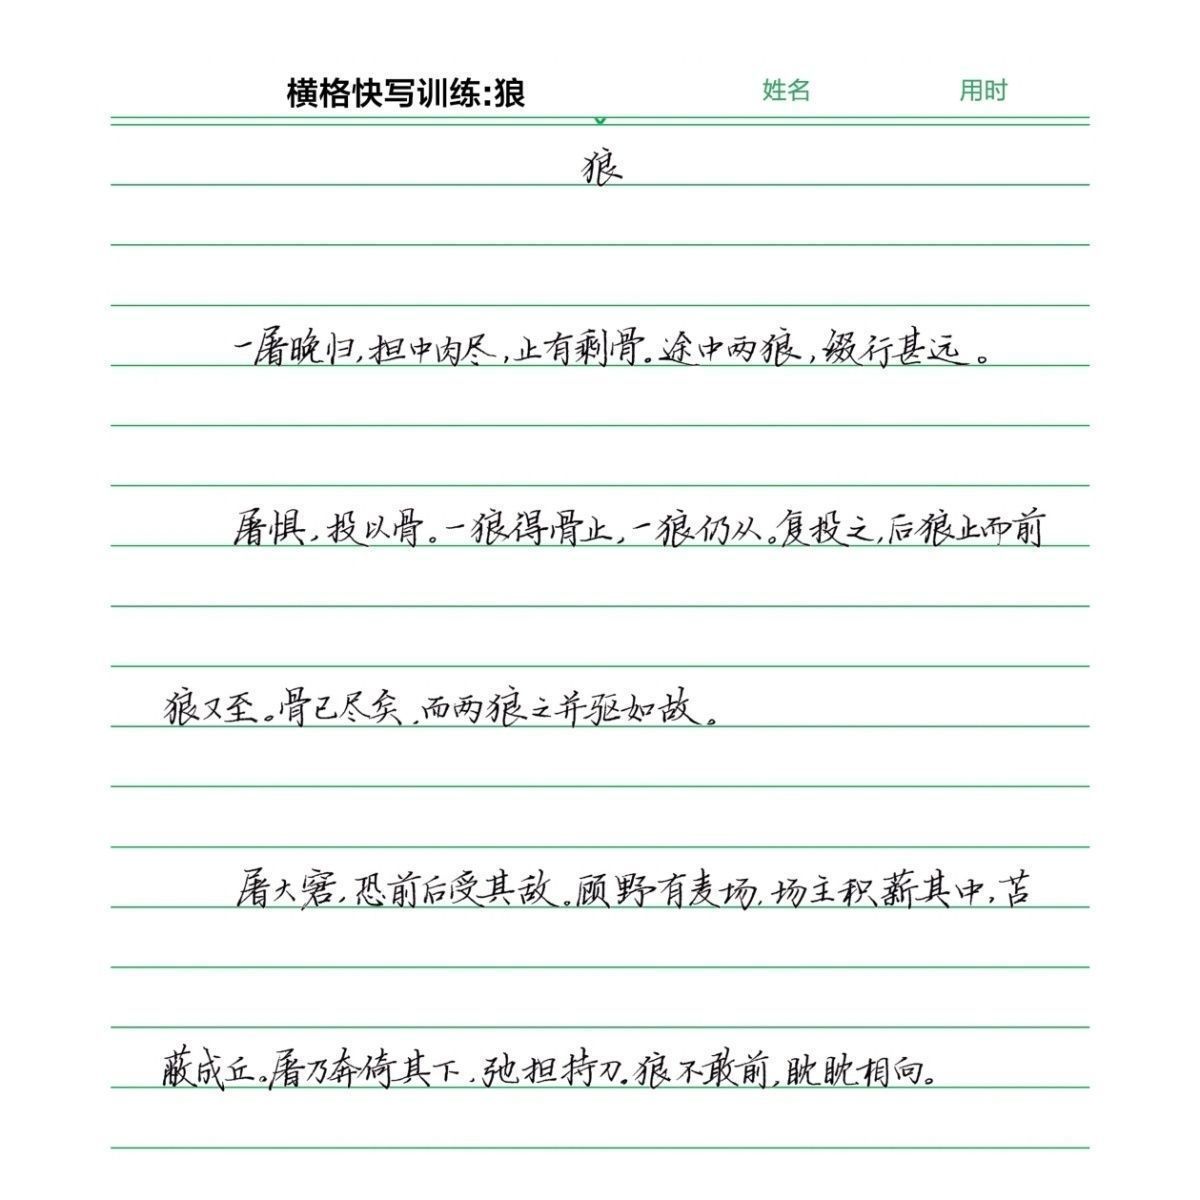 横格快写训练:狼 姓名 用时
狼
一屠晚归,担中肉尽,止有剩骨。途中两狼,缀行甚远。
屠惧,投以骨。一狼得骨止,一狼仍从。复投之,后狼止而前
狼又至。骨已尽矣,而两狼之并驱如故。
屠大窘,恐前后受其敌。顾野有麦场,场主积薪其中,苫
蔽成丘。屠乃奔倚其下,弛担持刀。狼不敢前,眈眈相向。